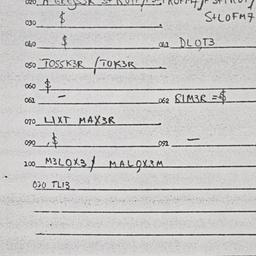 020
S+LOFM7
030 $
040 $ 041 DLQT3
050 TOSSK3R / TOK3R
060 $
061 - 062 BIM3R = $
070 LIXT MAX3R
090 $ 091 -
100 M3LQX3 / MALQX3M
020 TLI3